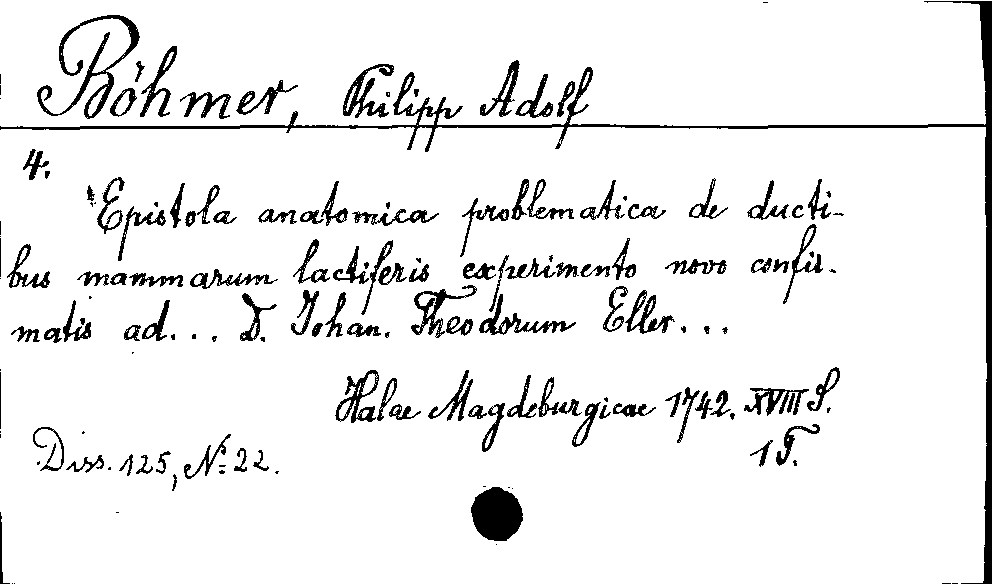 Böhmer, Philipp Adolf
4.
Epistola anatomica problematica de ducti-
bus mammarum lactiferis experimento novo confir-
matis ad... D. Johan. Theodorum Eller...
Halae Magdeburgicae 1742. XVIII S.
1 T.
Diss. 125, No 22.